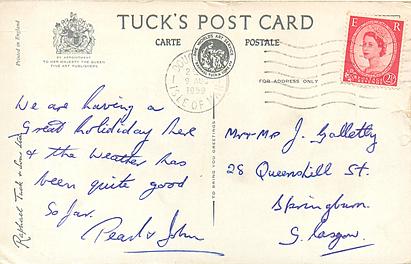 TUCK'S POST CARD
CARTE POSTALE
BY APPOINTMENT
TO HER MAJESTY THE QUEEN
FINE ART PUBLISHERS
Printed in England
FOR ADDRESS ONLY
E R
2½
1959
ISLE OF
We are having a
Great holididay here
& the weather has
been quite good
So far.
Pearl & John
Raphael Tuck & Sons Ltd
TO BRING YOU GREETINGS
Mr & Mrs J. Galletly
28 Queenshill St.
Springburn.
Glasgow.